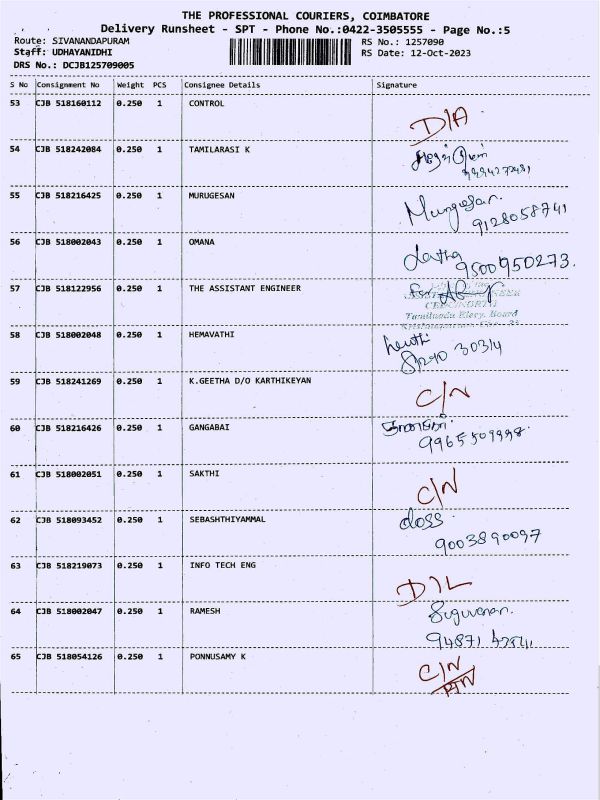 THE PROFESSIONAL COURIERS, COIMBATORE
Delivery Runsheet - SPT - Phone No.:0422-3505555 - Page No.:5
Route: SIVANANDAPURAM
RS No.: 1257090
Staff: UDHAYANIDHI
RS Date: 12-Oct-2023
DRS No.: DCJB125709005
S No Consignment No Weight PCS Consignee Details Signature
53 CJB 518160112 0.250 1 CONTROL
D/A
54 CJB 518242084 0.250 1 TAMILARASI K
55 CJB 518216425 0.250 1 MURUGESAN
Murugesan.
9128058741
56 CJB 518002043 0.250 1 OMANA
Latha
9500950273.
57 CJB 518122956 0.250 1 THE ASSISTANT ENGINEER
for
Tamilnadu Elecy. Board
58 CJB 518002048 0.250 1 HEMAVATHI
59 CJB 518241269 0.250 1 K.GEETHA D/O KARTHIKEYAN
C/N
60 CJB 518216426 0.250 1 GANGABAI
61 CJB 518002051 0.250 1 SAKTHI
C/N
62 CJB 518093452 0.250 1 SEBASHTHIYAMMAL
doss
9003890097
63 CJB 518219073 0.250 1 INFO TECH ENG
D/L
64 CJB 518002047 0.250 1 RAMESH
65 CJB 518054126 0.250 1 PONNUSAMY K
C/N